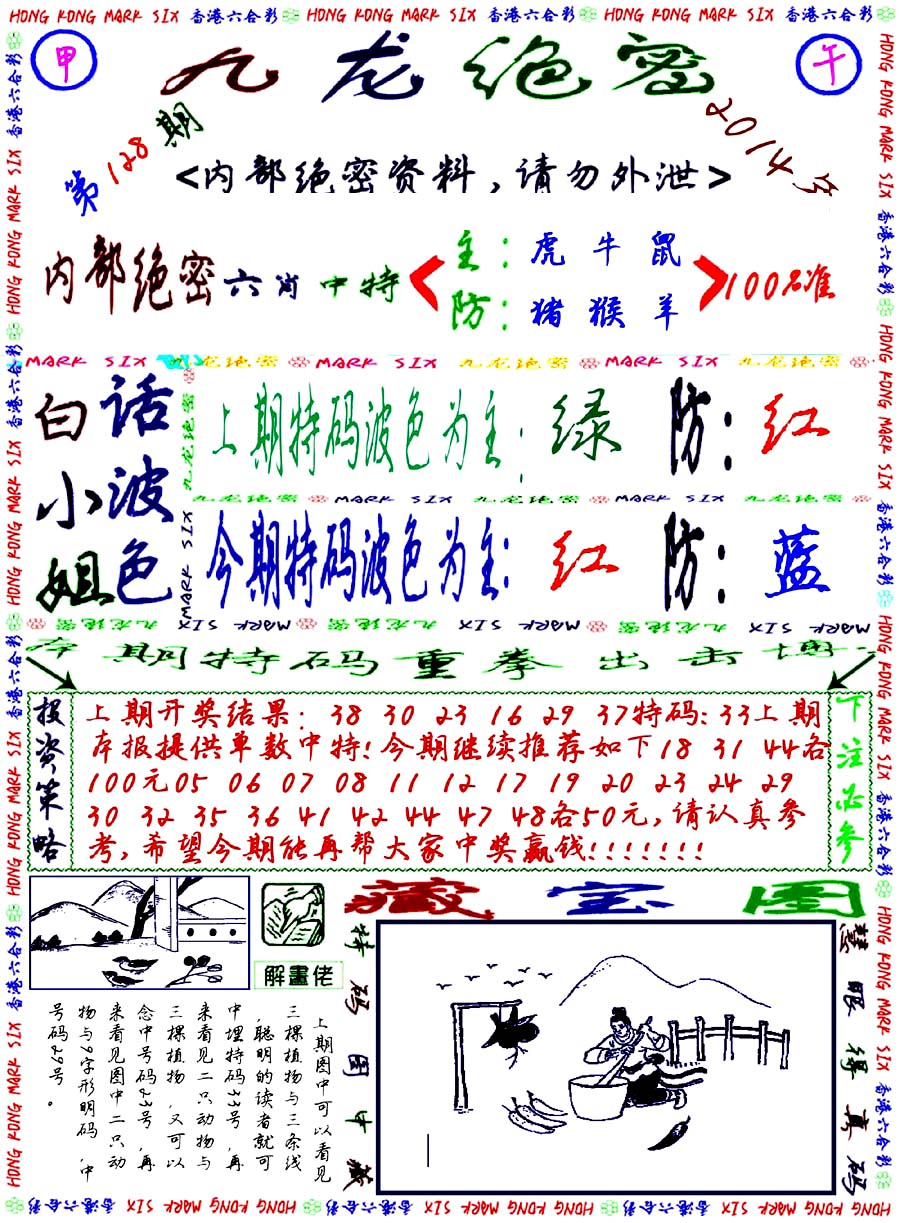 HONG KONG MARK SIX 香港六合彩 HONG KONG MARK SIX 香港六合彩 HONG KONG MARK SIX 香港六合彩
甲
九龙绝密
午
第128期
2014年
<内部绝密资料,请勿外泄>
内部绝密六肖中特
主:虎牛鼠
防:猪猴羊
100%准
MARK SIX 九龙绝密 MARK SIX 九龙绝密 MARK SIX 九龙绝密
白小姐
话波色
上期特码波色为主:绿 防:红
九龙绝密 MARK SIX 九龙绝密 MARK SIX 九龙绝密
今期特码波色为主:红 防:蓝
MARK SIX 九龙绝密 MARK SIX 九龙绝密 MARK SIX 九龙绝密
本期特码重拳出击
投资策略
上期开奖结果:38 30 23 16 29 37特码:33上期
本报提供单数中特!今期继续推荐如下18 31 44各
100元05 06 07 08 11 12 17 19 20 23 24 29
30 32 35 36 41 42 44 47 48各50元,请认真参
考,希望今期能再帮大家中奖赢钱!!!!!!!
下注必参
藏宝图
解畫佬
上期图中可以看见
三棵植物与三条线
,聪明的读者就可
中埋特码33号,再
来看见二只动物与
三棵植物,又可以
念中号码23号,再
来看见图中二只动
物与9字形明码,中
号码29号。
特码图中藏
慧眼得真码
HONG KONG MARK SIX 香港六合彩 HONG KONG MARK SIX 香港六合彩 HONG KONG MARK SIX 香港六合彩